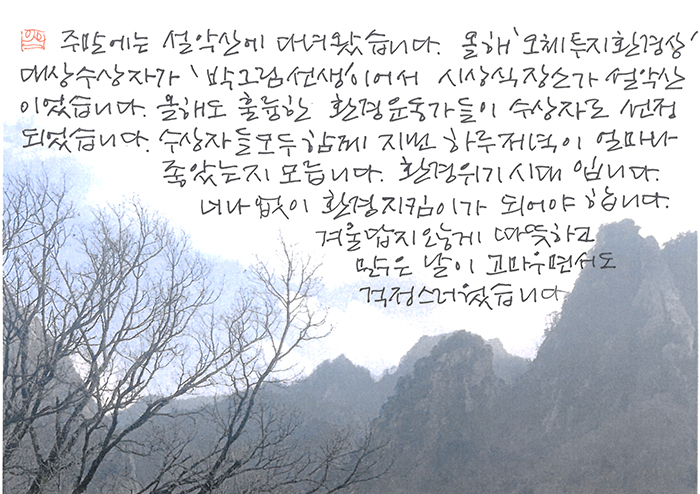 주말에는 설악산에 다녀왔습니다. 올해 '오체투지환경상'
대상수상자가 '박그림선생'이어서 시상식장소가 설악산
이었습니다. 올해도 훌륭한 환경운동가들이 수상자로 선정
되었습니다. 수상자들모두 함께 지낸 하루저녁이 얼마나
좋았는지 모릅니다. 환경위기시대 입니다.
너나없이 환경지킴이가 되어야 합니다.
겨울답지않게 따뜻하고
맑은 날이 고마우면서도
걱정스러웠습니다